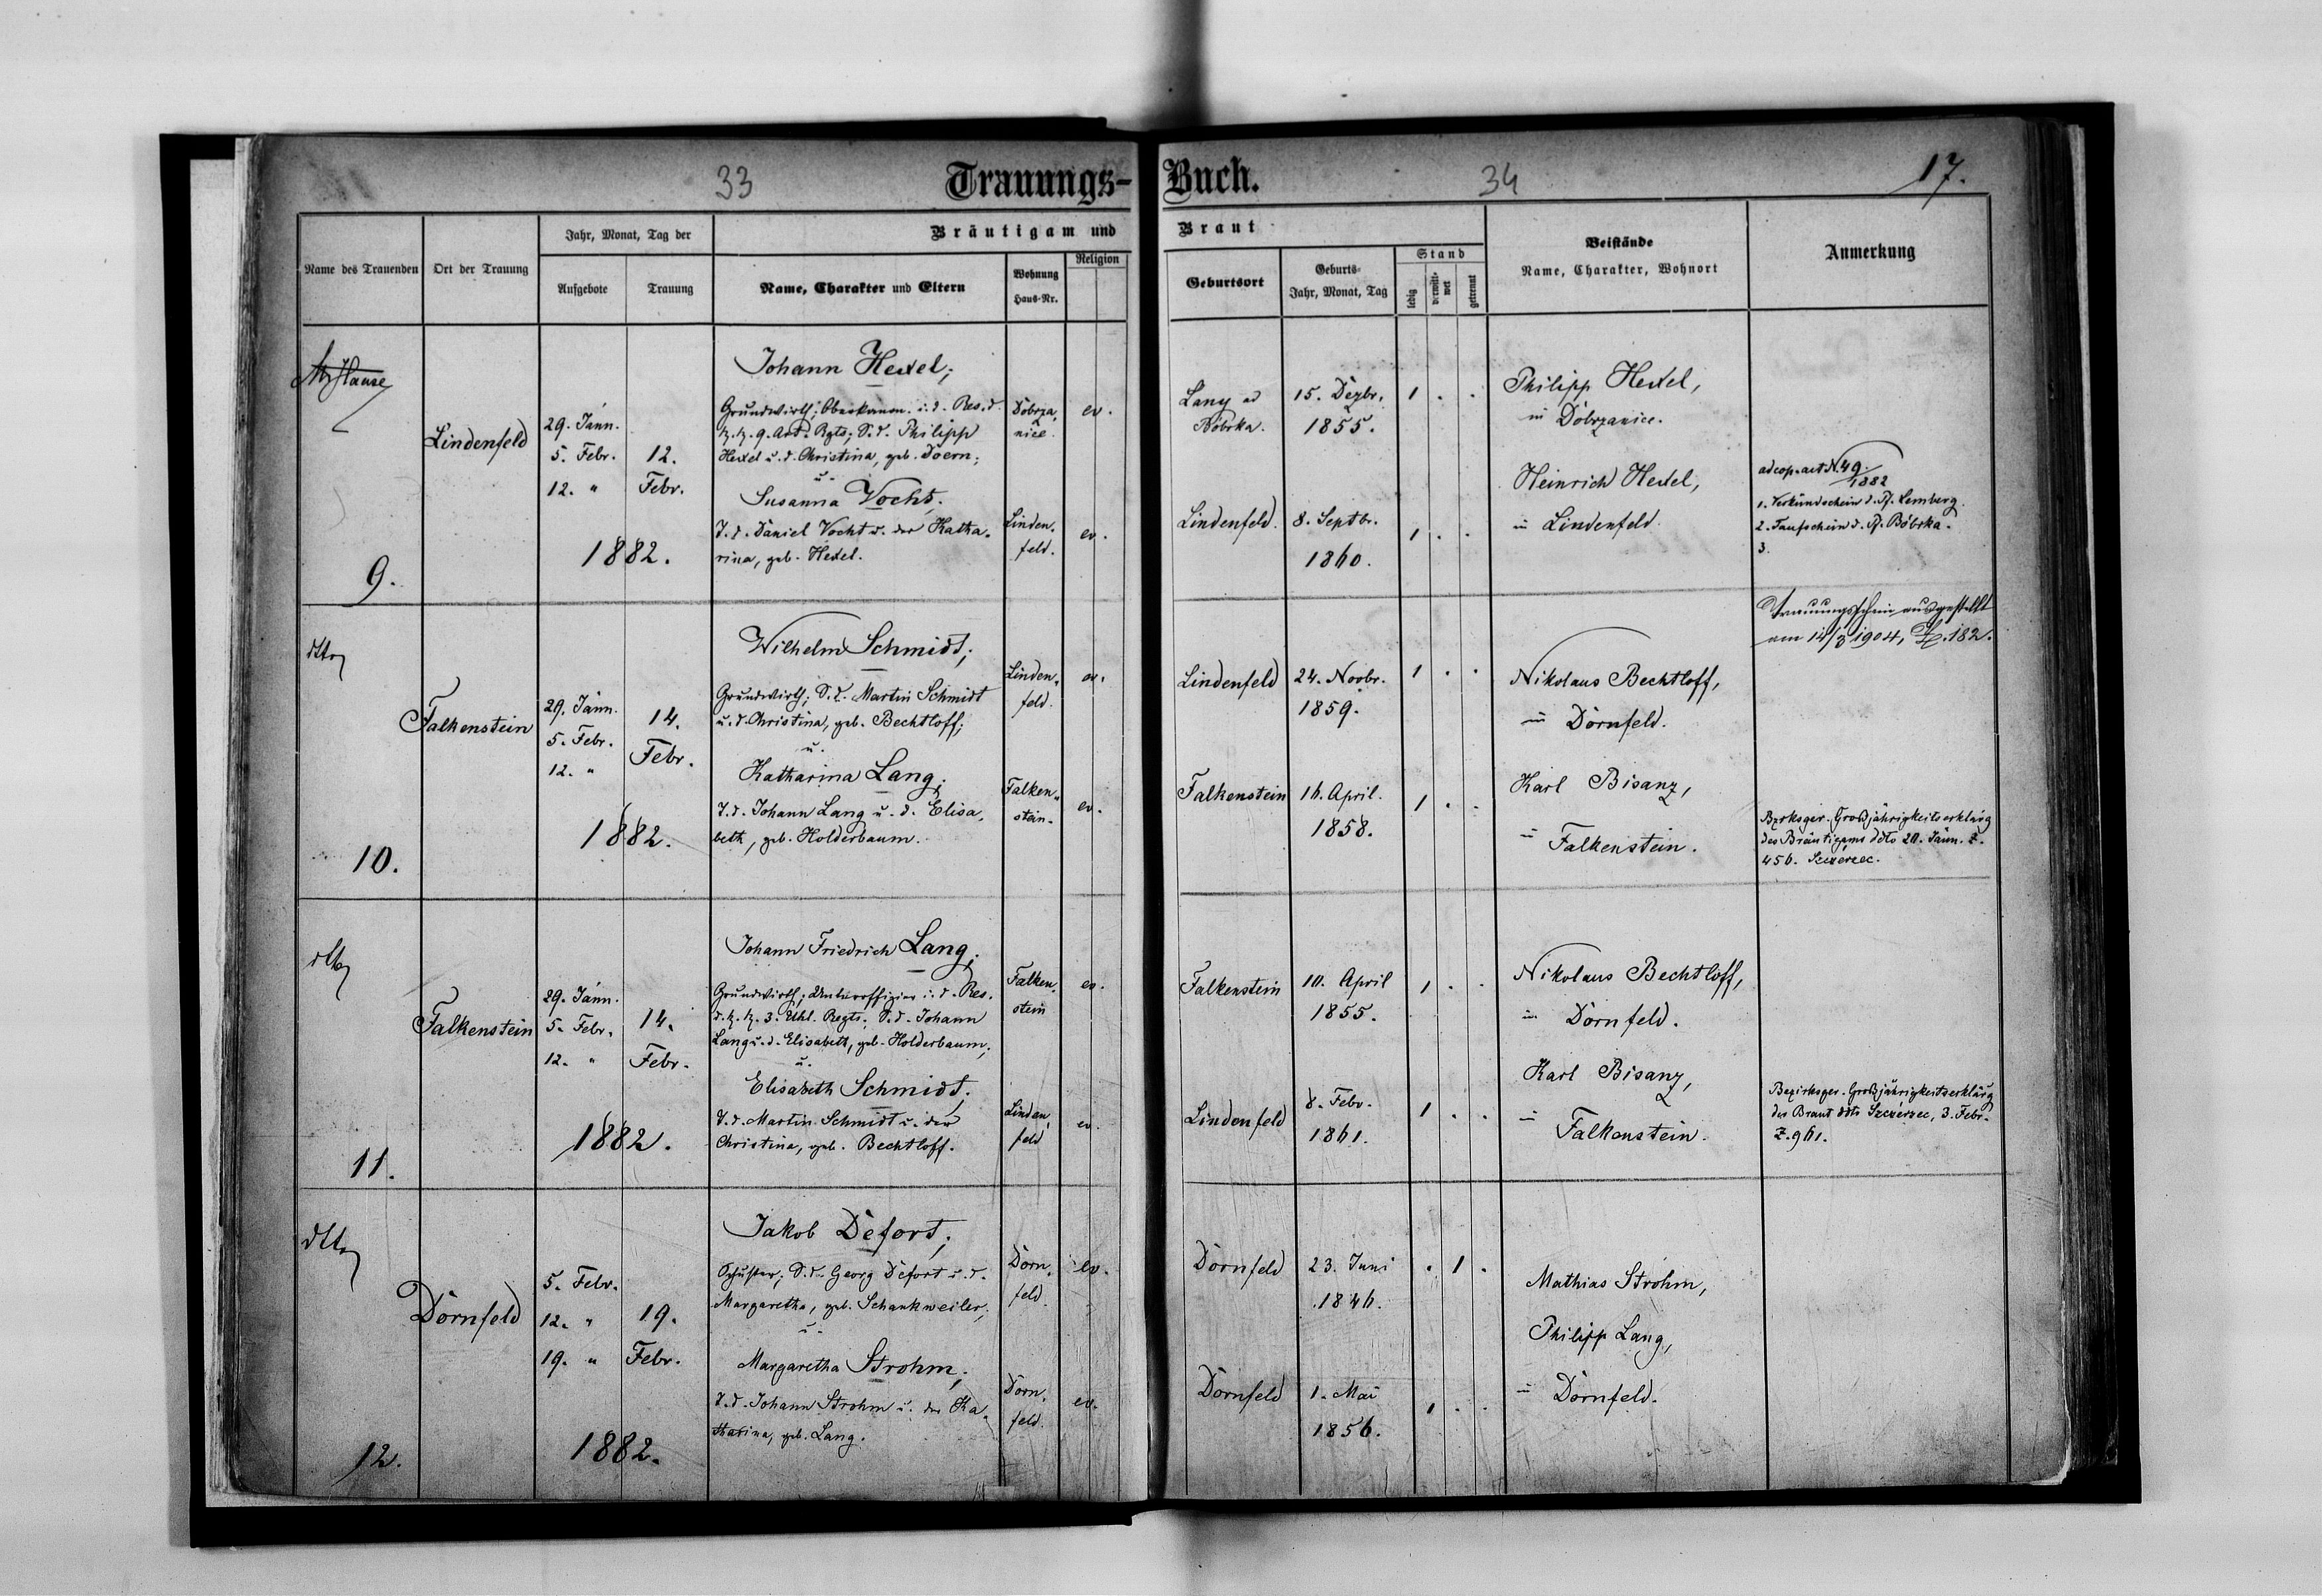 33
Trauungs-Buch.
34
17.
Name des Trauenden
Ort der Trauung
Jahr, Monat, Tag der
Aufgebote
Trauung
Bräutigam und Braut
Name, Charakter und Eltern
Wohnung
Haus-Nr.
Religion
Geburtsort
Geburts-
Jahr, Monat, Tag
Stand
ledig
verwit-
wet
getrennt
Beistände
Name, Charakter, Wohnort
Anmerkung
9.
Lindenfeld
29. Jänn.
5. Febr.
12. "
12.
Febr.
1882.
Johann Hexel;
Grundwirth; i. d. Res. d.
k. k. 9. Art. Rgts; S. d. Philipp
Hexel u. d. Christina, geb. Doern;
u.
Susanna Vocht;
T. d. Daniel Vocht u. der Katha-
rina, geb. Hexel.
Dobrza-
nice.
ev.
Linden-
feld.
ev.
Lany ad
Bóbrka.
15. Dezbr.
1855.
1 . .
Lindenfeld.
8. Septbr.
1860.
1 . .
Philipp Hexel,
in Dobrzanice.
Heinrich Hexel,
in Lindenfeld.
ad cop. act N. 49./1882
1. Verkündschein d. Pf. Lemberg.
2. Taufschein d. Pf. Bóbrka.
3.
dtto
10.
Falkenstein
29. Jänn.
5. Febr.
12. "
14.
Febr.
1882.
Wilhelm Schmidt;
Grundwirth; S. d. Martin Schmidt
u. d. Christina, geb. Bechtloff;
u.
Katharina Lang;
T. d. Johann Lang u. d. Elisa-
beth, geb. Holderbaum.
Linden-
feld.
ev.
Falken-
stein.
ev.
Lindenfeld
24. Novbr.
1859.
1 . .
Falkenstein
16. April.
1858.
1 . .
Nikolaus Bechtloff,
in Dornfeld.
Karl Bisanz,
in Falkenstein.
Trauungsschein ausgestellt
am 14/3 1904, Z. 182.
Bzrksger. Großjährigkeitserklärg
des Bräutigams ddto 20. Jänn. Z.
456. Szczerzec.
dtto
11.
Falkenstein
29. Jänn.
5. Febr.
12. "
14.
Febr.
1882.
Johann Friedrich Lang;
Grundwirth; Unteroffizier i. d. Res.
d. k. k. 3. Uhl. Regts; S. d. Johann
Lang u. d. Elisabeth, geb. Holderbaum;
u.
Elisabeth Schmidt;
T. d. Martin Schmidt u. der
Christina, geb. Bechtloff.
Falken-
stein
ev.
Linden-
feld
ev.
Falkenstein
10. April
1855.
1 . .
Lindenfeld
8. Febr.
1861.
1 . .
Nikolaus Bechtloff,
in Dornfeld.
Karl Bisanz,
in Falkenstein.
Bezirksger. Großjährigkeitserklärg
der Braut ddto Szczérzec, 3. Febr.
Z. 961.
dtto
12.
Dornfeld
5. Febr.
12. "
19. "
19.
Febr.
1882.
Jakob Defort;
Schuster; S. d. Georg Defort u. d.
Margaretha, geb. Schankweiler;
u.
Margaretha Strohm;
T. d. Johann Strohm u. der Ka-
tharina, geb. Lang.
Dorn-
feld.
ev.
Dorn-
feld.
ev.
Dornfeld
23. Juni
1846.
. 1 .
Dornfeld
1. Mai
1856.
1 . .
Mathias Strohm,
Philipp Lang,
in Dornfeld.